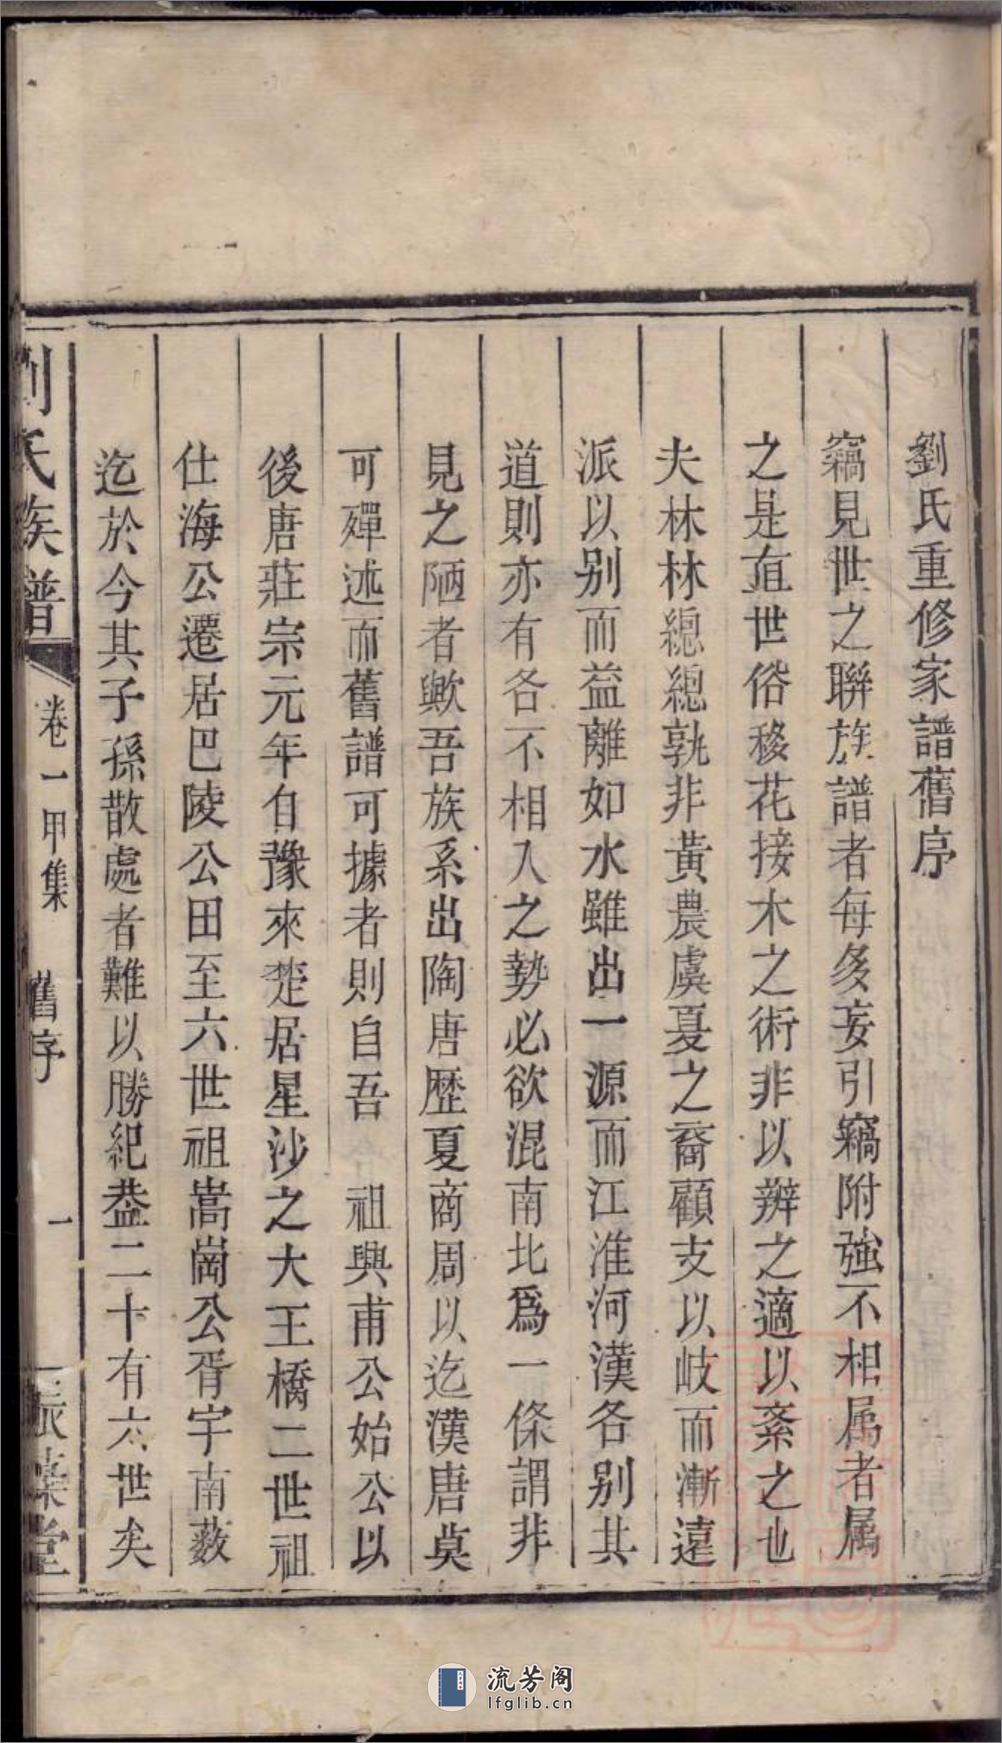 劉氏重修家譜舊序
竊見世之聯族譜者每多妄引竊附強不相属者属
之是直世俗移花接木之術非以辨之適以紊之也
夫林林總總孰非黃農虞夏之裔顧支以岐而漸遠
派以别而益離如水雖出一源而江淮河漢各别其
道則亦有各不相入之勢必欲混南北爲一條謂非
見之陋者歟吾族系出陶唐歷夏商周以迄漢唐莫
可殫述而舊譜可據者則自吾 祖興甫公始公以
後唐莊宗元年自豫來楚居星沙之大王橋二世祖
仕海公遷居巴陵公田至六世祖嵩崗公胥宇南薮
迄於今其子孫散處者難以勝紀葢二十有六世矣
劉氏族譜
卷一甲集
舊序
一
堂
流芳阁
lfglib.cn